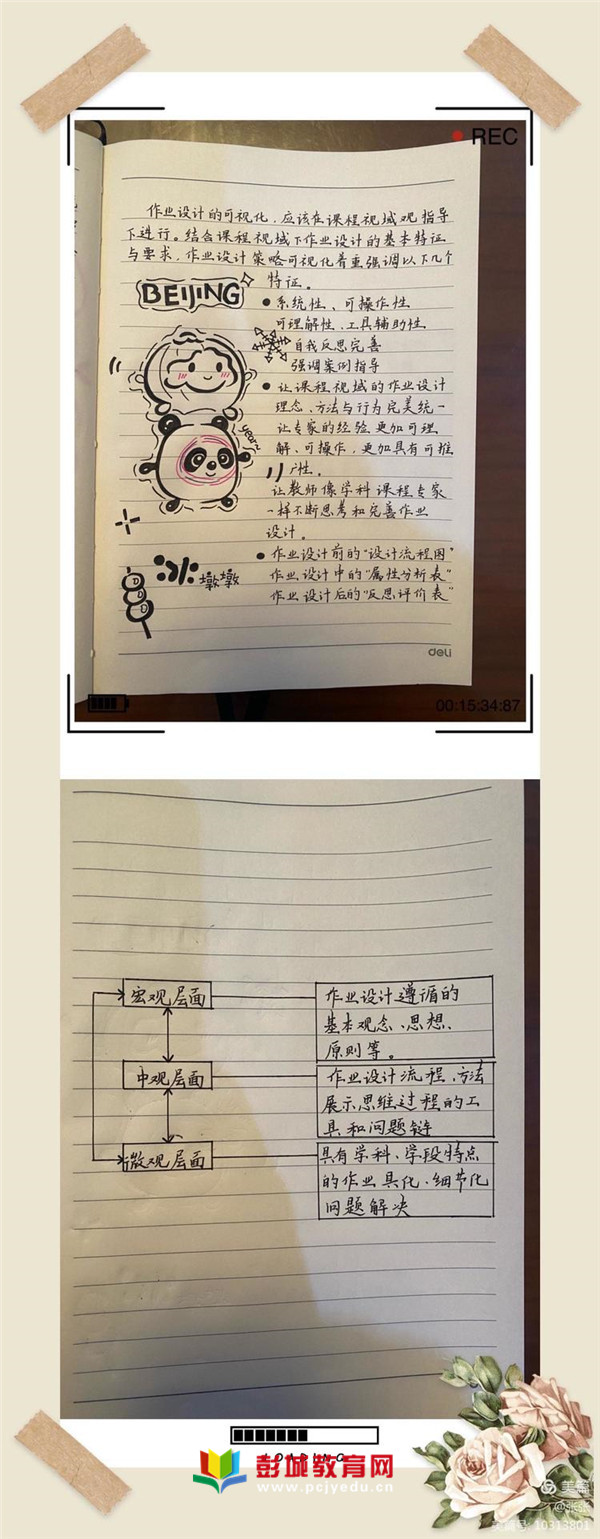 REC
作业设计的可视化，应该在课程视域观指导
下进行。结合课程视域下作业设计的基本特征
与要求，作业设计策略可视化着重强调以下几个
特征。
BEIJING
●系统性、可操作性
可理解性、工具辅助性
自我反思完善
强调案例指导
●让课程视域的作业设计
理念、方法与行为完美统一
让专家的经验更加可理
解、可操作，更加具有可推
广性。
year~
让教师像学科课程专家
一样不断思考和完善作业
设计。
●作业设计前的“设计流程图”
作业设计中的“属性分析表”
作业设计后的“反思评价表”
冰墩墩
deli
00:15:34:87
宏观层面
作业设计遵循的
基本观念、思想、
原则等。
中观层面
作业设计流程、方法
展示思维过程的工
具和问题链
微观层面
具有学科、学段特点
的作业具化、细节化
问题解决
LOADING
彭城教育网
www.pcjyedu.cn
美篇
@张张
美篇号:10313801